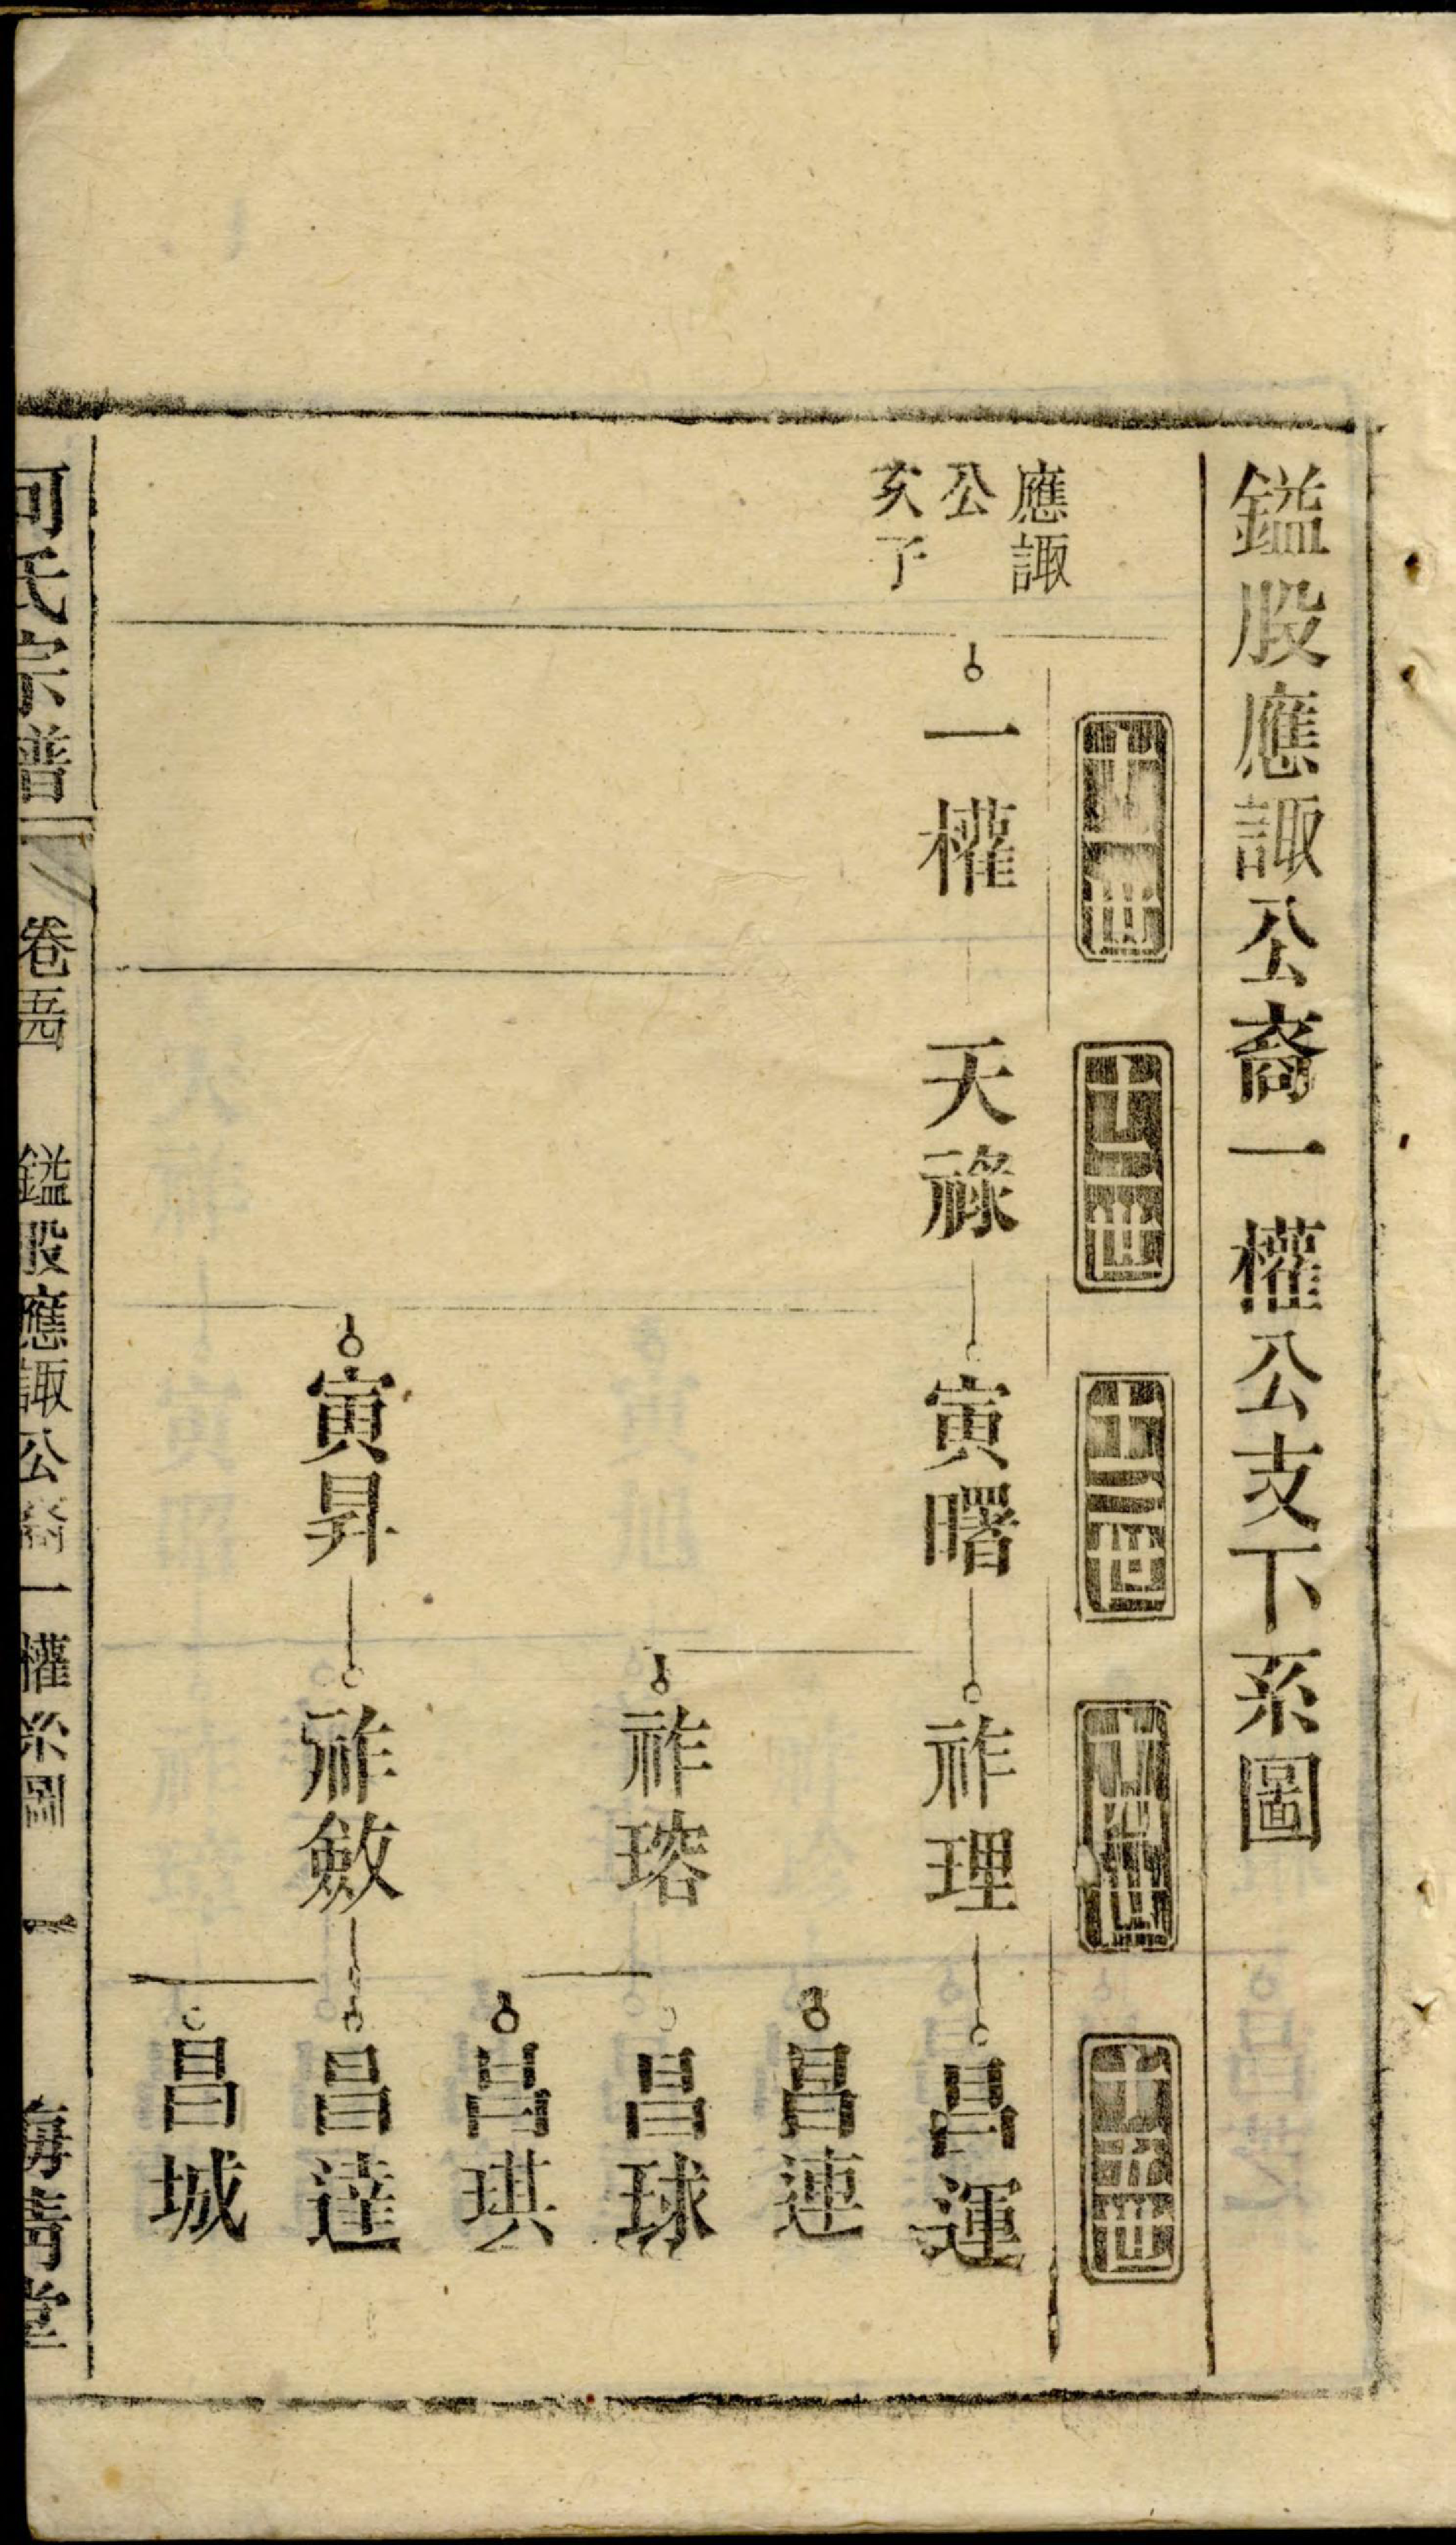 鎰股應諏公裔一權公支下系圖
十一世
十二世
十三世
十四世
十五世
應諏
公
次子
一權
天祿
寅曙
祚理
昌運
昌連
祚瑢
昌球
昌琪
寅昇
祚斂
昌達
昌城
何氏宗譜
卷
鎰股應諏公裔一權系圖
一
堂